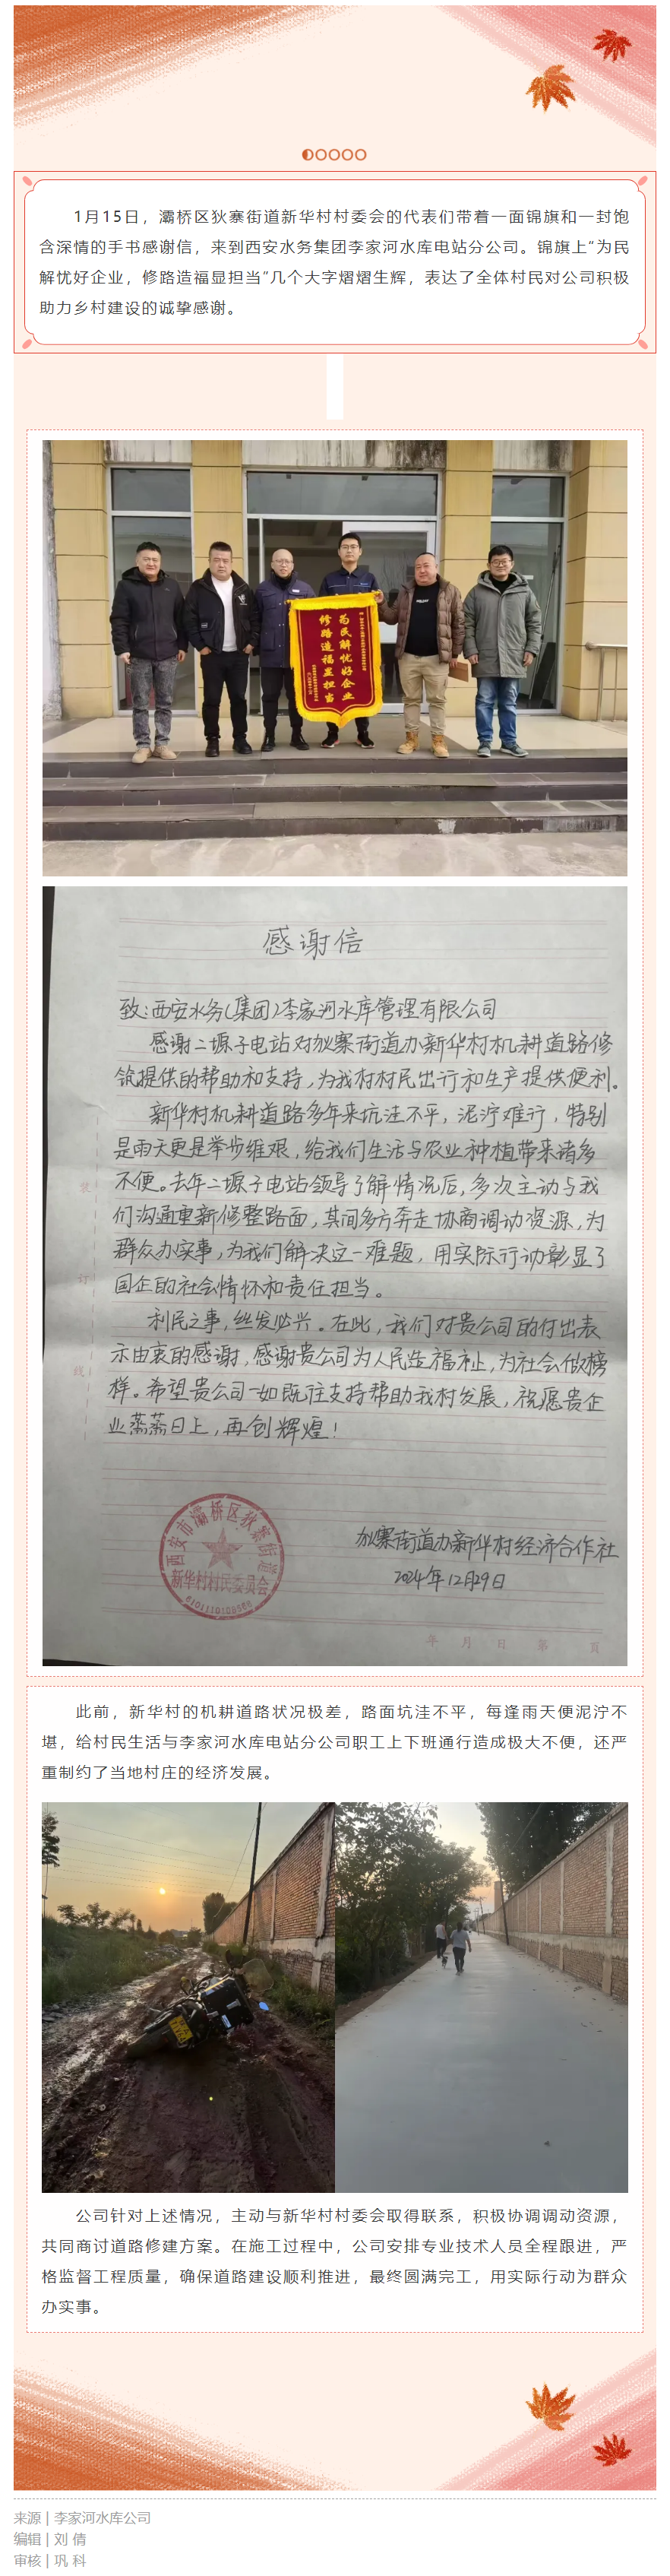 1月15日，灞桥区狄寨街道新华村村委会的代表们带着一面锦旗和一封饱
含深情的手书感谢信，来到西安水务集团李家河水库电站分公司。锦旗上“为民
解忧好企业，修路造福显担当”几个大字熠熠生辉，表达了全体村民对公司积极
助力乡村建设的诚挚感谢。
为民解忧好企业
修路造福显担当
感谢信
致：西安水务（集团）李家河水库管理有限公司
感谢二塬子电站对狄寨街道办新华村机耕道路修
筑提供的帮助和支持，为我村村民出行和生产提供便利。
新华村机耕道路多年来坑洼不平，泥泞难行，特别
是雨天更是举步维艰，给我们生活与农业种植带来诸多
不便。去年二塬子电站领导了解情况后，多次主动与我
们沟通重新修整路面，其间多方奔走协商调动资源，为
群众办实事，为我们解决这一难题，用实际行动彰显了
国企的社会情怀和责任担当。
利民之事，丝发必兴。在此，我们对贵公司的付出表
示由衷的感谢，感谢贵公司为人民造福祉，为社会做榜
样。希望贵公司一如既往支持帮助我村发展，祝愿贵企
业蒸蒸日上，再创辉煌！
装
订
线
西安市灞桥区狄寨街道
新华村村民委员会
狄寨街道办新华村经济合作社
2024年12月29日
年 月 日 第 頁
此前，新华村的机耕道路状况极差，路面坑洼不平，每逢雨天便泥泞不
堪，给村民生活与李家河水库电站分公司职工上下班通行造成极大不便，还严
重制约了当地村庄的经济发展。
公司针对上述情况，主动与新华村村委会取得联系，积极协调调动资源，
共同商讨道路修建方案。在施工过程中，公司安排专业技术人员全程跟进，严
格监督工程质量，确保道路建设顺利推进，最终圆满完工，用实际行动为群众
办实事。
来源 | 李家河水库公司
编辑 | 刘 倩
审核 | 巩 科